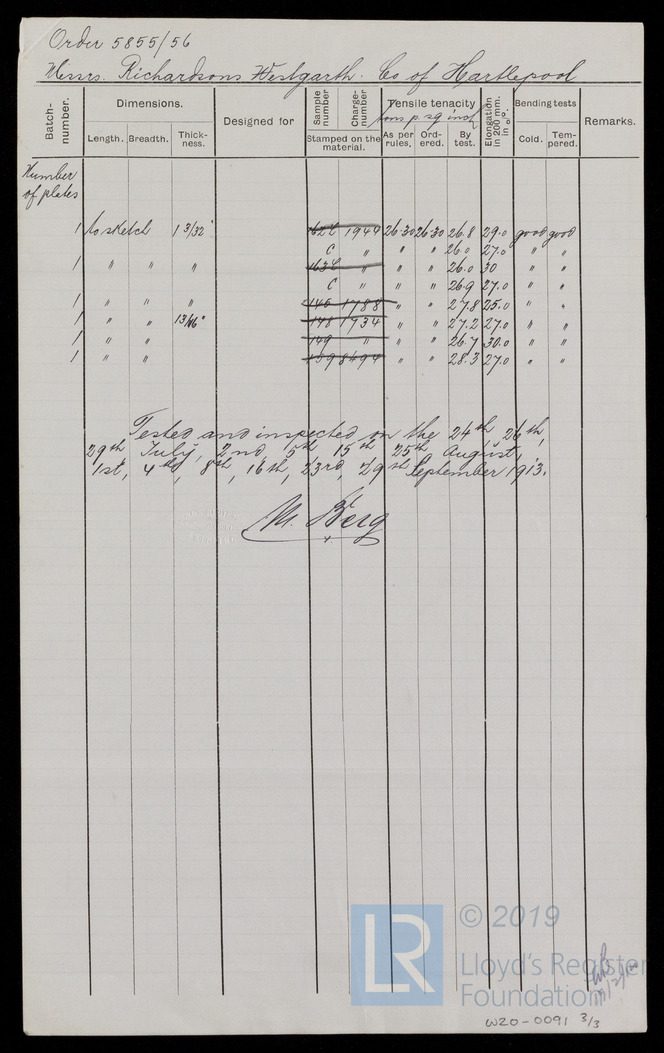 Order 5855/56
Messrs. Richardsons Westgarth. Co of Hartlepool
Batch-number. Dimensions. Designed for Sample number Charge-number Tensile tenacity Elongation in 200 mm. in %. Bending tests Remarks.
tons p sq inch
Length. Breadth. Thick-ness. Stamped on the material. As per rules, Ord-ered. By test. Cold. Tem-pered.
Number
of plates
1 to sketch 1 3/32" 162 C 1944 26-30 26-30 26.8 29.0 good good
C " " " 26.0 27.0 " "
1 " " " 163 C " " " 26.0 30 " "
C " " " 26.9 27.0 " "
1 " " " 146 1788 " " 27.8 25.0 " "
1 " " 13/16" 148 1734 " " 27.2 27.0 " "
1 " " 149 " " " 26.7 30.0 " "
1 " " 159 8494 " " 28.3 27.0 " "
Tested and inspected on the 24th, 26th,
29th July, 2nd, 5th 15th 25th August,
1st, 4th, 8th, 16th, 23rd, 29th September 1913.
M. Berg
LR © 2019
Lloyd's Register
Foundation
W20-0091 3/3